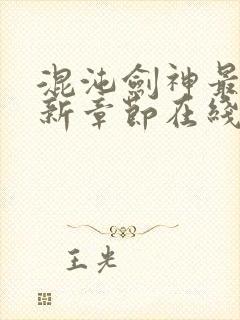 混沌劍神最
新章節在綫
王光